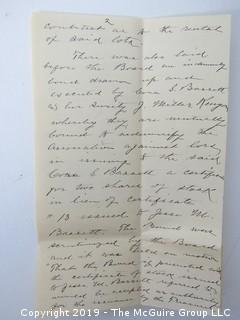 2
contract as to the rental
of said lots.
There was also laid
before the Board an indemnity
bond drawn up and
executed by Cora E. Bassett
as
whereby they are mutually
bound to indemnify the
Association against loss
in issuing to the said
Cora E. Bassett a certificate
for two shares of stock
in lieu of certificate
B issued to Jesse M.
Bassett. The Bond was
scrutinized by the Board
and it was on motion
That the Bond be accepted and
the certificate of stock issued
to Jesse M. Bassett
would be
for the by the
Copyright 2019 - The McGuire Group LLC